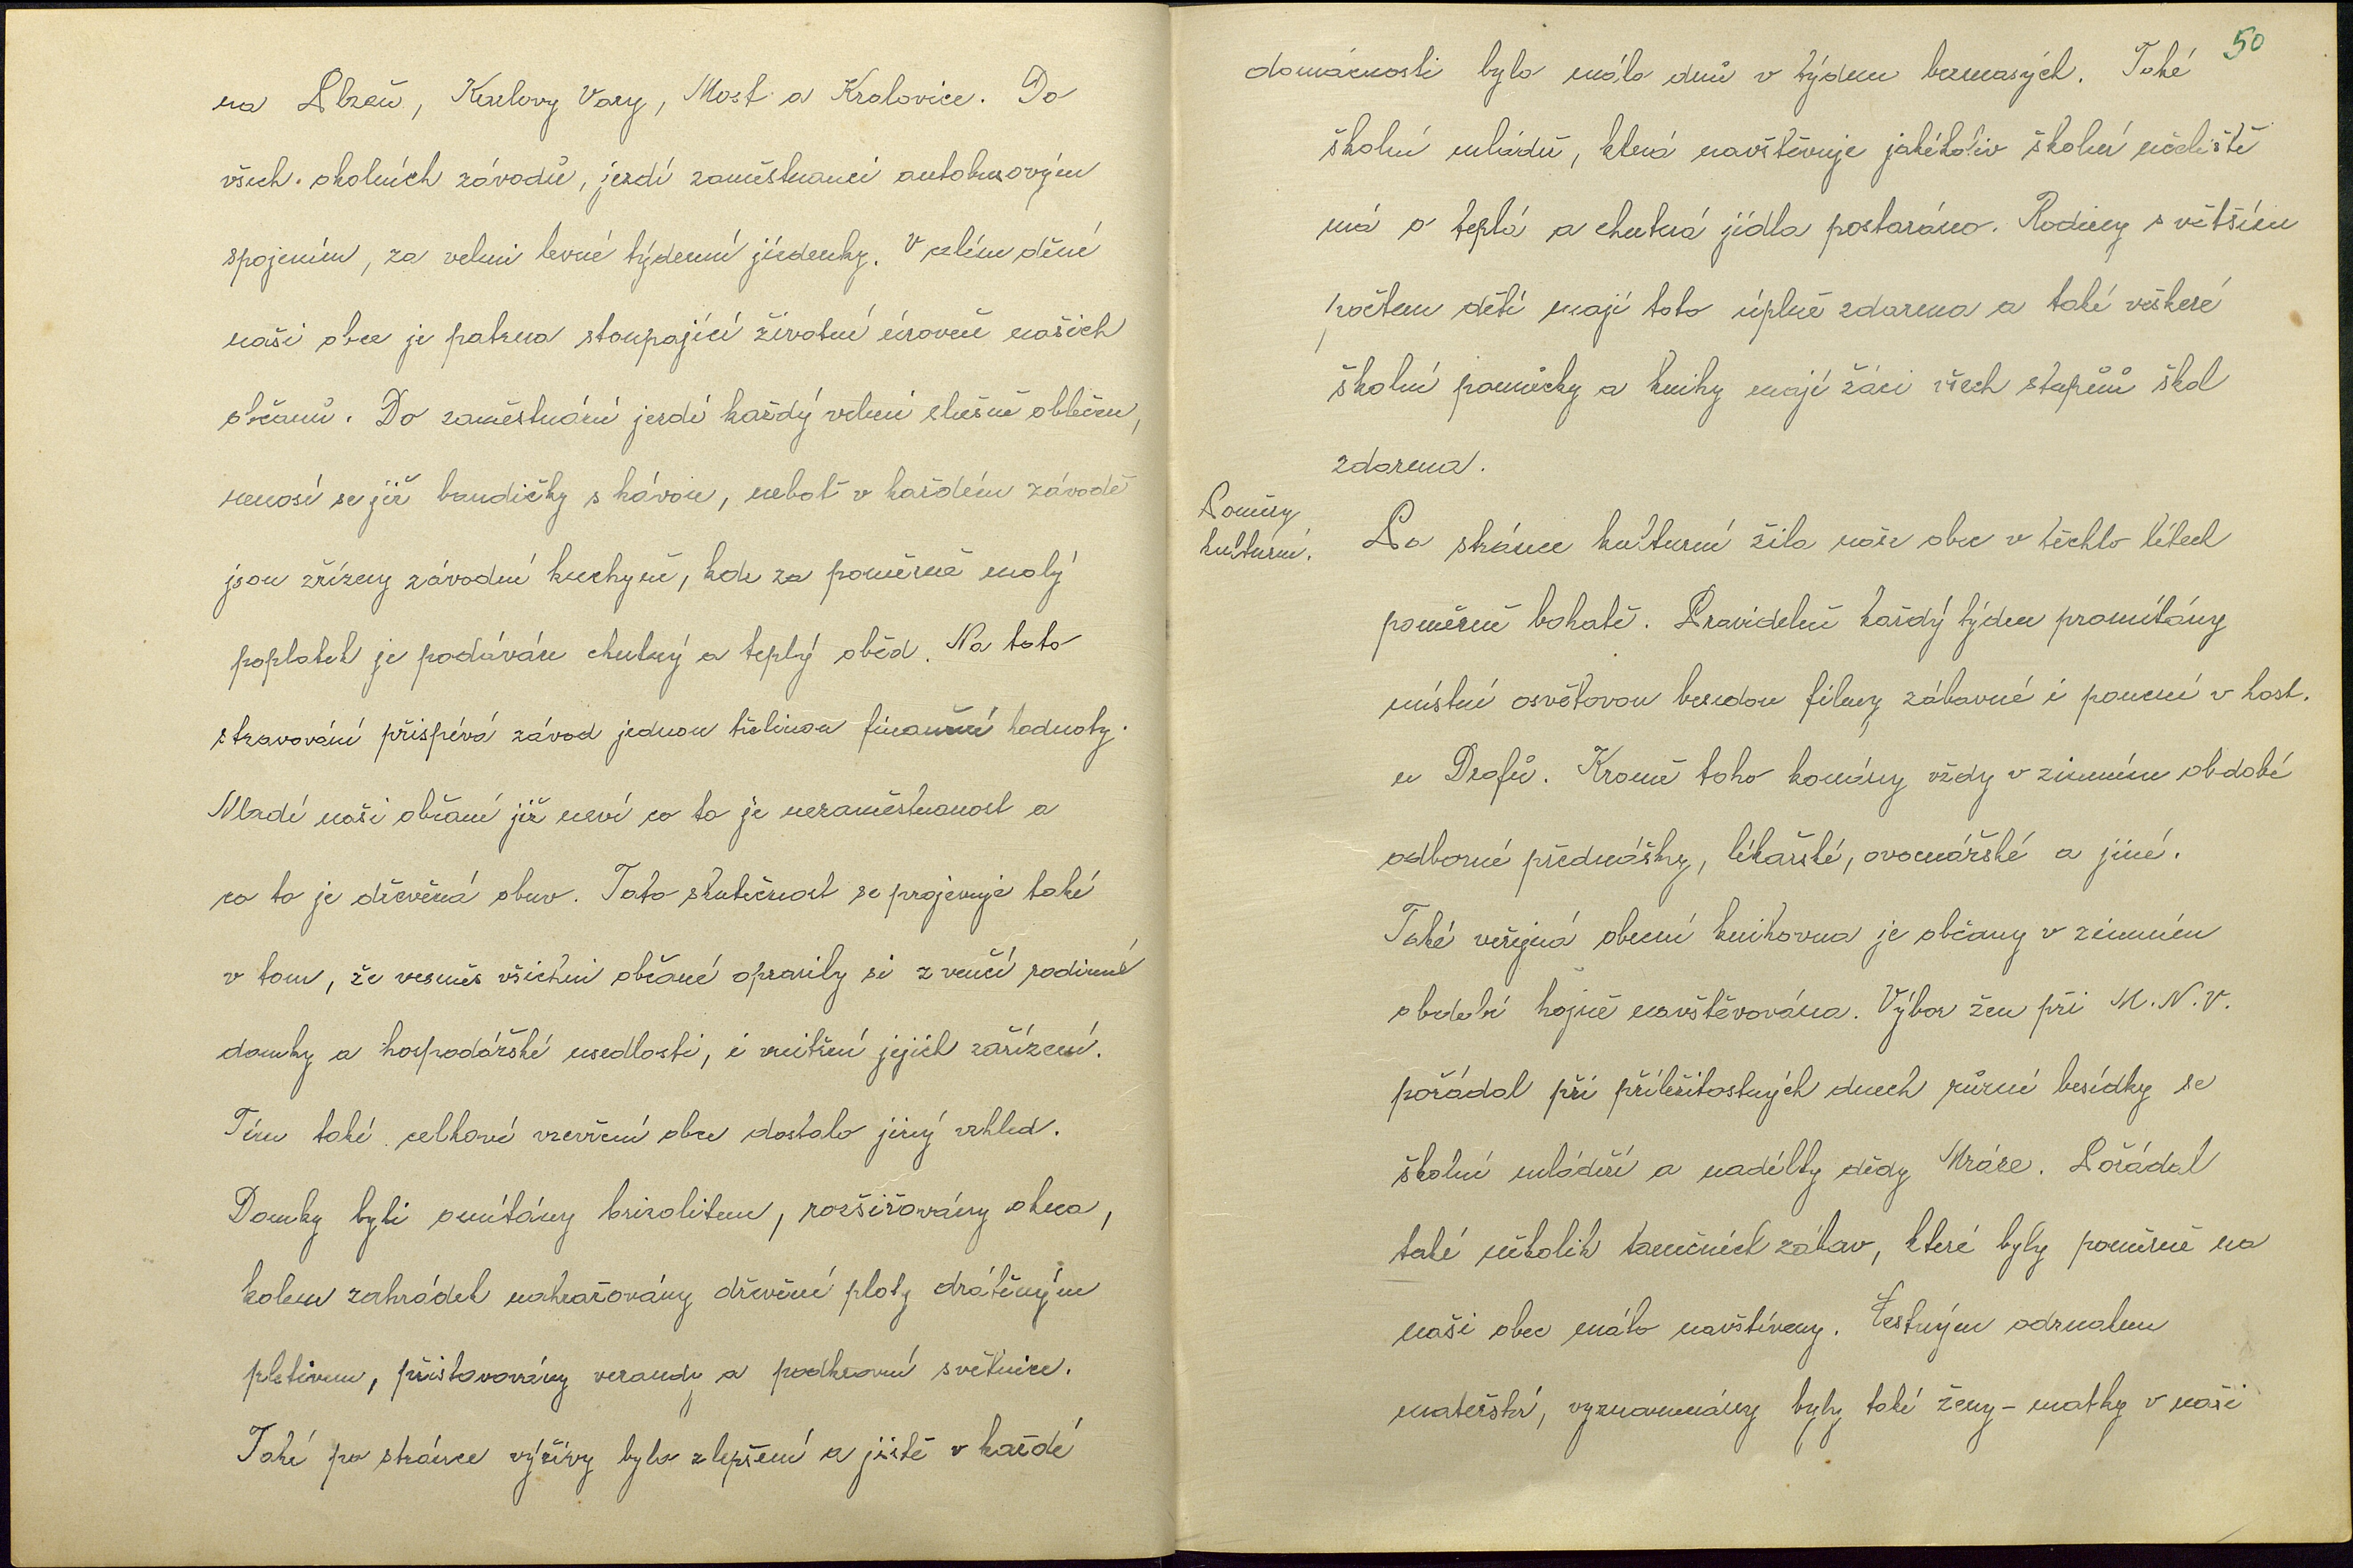 na Plzeň, Karlovy Vary, Most a Kralovice. Do
všech okolních závodů, jezdí zaměstnanci autobusovým
spojením, za velmi levné týdenní jízdenky. V celém dění
naši obce je patrna stoupající životní úroveň našich
občanů. Do zaměstnání jezdí každý velmi slušně oblečen,
nenosí se již bandičky s kávou, neboť v každém závodě
jsou zřízeny závodní kuchyně, kde za poměrně malý
poplatek je podáván chutný a teplý oběd. Na toto
stravování přispívá závod jednou třetinou finanční hodnoty.
Mladí naši občané již neví co to je nezaměstnanost a
co to je dřevěná obuv. Tato skutečnost se projevuje také
v tom, že vesměs všichni občané opravily si z venčí rodinné
domky a hospodářské usedlosti, i vnitřní jejich zařízení.
Tím také celkové vzevření obce dostalo jiný vzhled.
Domky byli omítány brizolitem, rozšiřovány okna,
kolem zahrádek nahražovány dřevěné ploty drátěným
pletivem, přistavovány verandy a podkrovní světnice.
Také po stránce výživy bylo zlepšení a jistě v každé
50
domácnosti bylo málo dnů v týdnu bezmasých. Také
školní mládež, která navštěvuje jakékoliv školní učeliště
má o teplá a chutná jídla postaráno. Rodiny s větším
počtem dětí mají toto úplně zdarma a také veškeré
školní pomůcky a knihy mají žáci všech stupňů škol
zdarma.
Poměry
kulturní.
Po stránce kulturní žila naše obec v těchto létech
poměrně bohatě. Pravidelně každý týden promítány
místní osvětovou besedou filmy zábavné i poučné v host.
u Drofů. Kromě toho konány vždy v zimním období
odborné přednášky, lékařské, ovocnářské a jiné.
Také veřejná obecní knihovna je občany v zimním
období hojně navštěvována. Výbor žen při M.N.V.
pořádal při příležitostných dnech různé besídky se
školní mládeží a nadílky dědy Mráze. Pořádal
také několik tanečních zábav, které byly poměrně na
naši obec málo navštíveny. Čestným odznakem
mateřství, vyznamenány byly také ženy - matky v naši